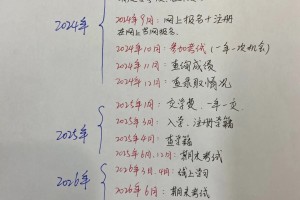 2024年
2024年9月：网上报名+注册
在网上官网报名.
2024年10月：参加考试(一年一次机会)
2024年11月：查询成绩
2024年12月：查录取情况
2025年
2025年1月：交学费，一年一交
2025年3月：入学、注册学籍
2025年4月：查学籍
2025年6月,12月：期末考试
2026年
2026年3月,4月：线上学习
2026年6月：期末考试